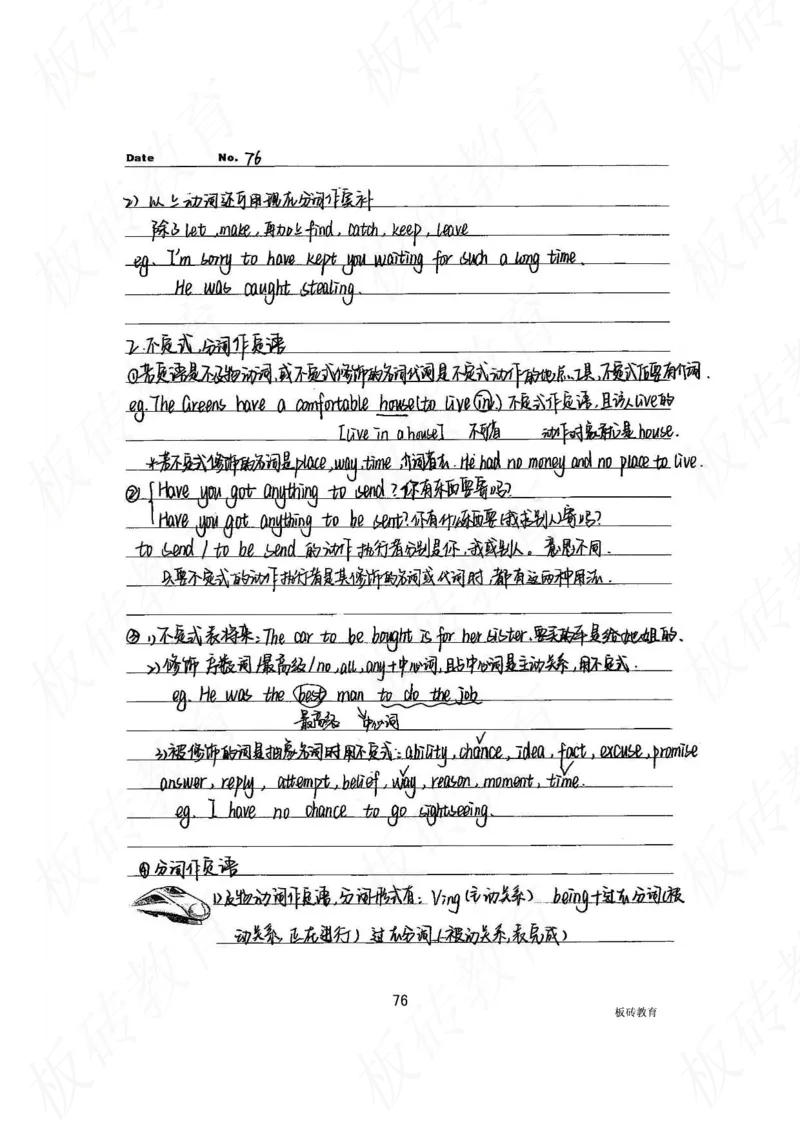 Date No. 76
2) 以上动词还可用现在分词作宾补
除了let, make, 再加上find, catch, keep, leave
eg. I'm sorry to have kept you waiting for such a long time.
He was caught stealing.
2. 不定式, 分词作定语
①若定语是不及物动词, 或不定式修饰的名词代词是不定式动作的地点、工具, 不定式后要有介词.
eg. The Greens have a comfortable house (to live in.) 不定式作定语, 且该人live的
[live in a house] 不可省 动作对象就是house.
*若不定式修饰的名词是place, way, time 介词省去. He had no money and no place to live.
② Have you got anything to send? 你有东西要寄吗?
Have you got anything to be sent? 你有什么东西要(我或别人)寄吗?
to send / to be send 的动作执行者分别是你, 我或别人。意思不同.
只要不定式的动作执行者是其修饰的名词或代词时, 都有这两种用法.
③ 1) 不定式表将来: The car to be bought is for her sister. 要买的车是给她姐的.
2) 修饰 序数词/最高级/no, all, any+中心词, 且与中心词是主动关系, 用不定式.
eg. He was the best man to do the job
最高级 中心词
3) 被修饰的词是抽象名词时用不定式: ability, chance, idea, fact, excuse, promise
answer, reply, attempt, belief, way, reason, moment, time.
eg. I have no chance to go sightseeing.
④ 分词作定语
1) 及物动词作定语, 分词形式有: Ving (主动关系) being+过去分词(被
动关系, 正在进行) 过去分词(被动关系, 表完成)
76
板砖教育